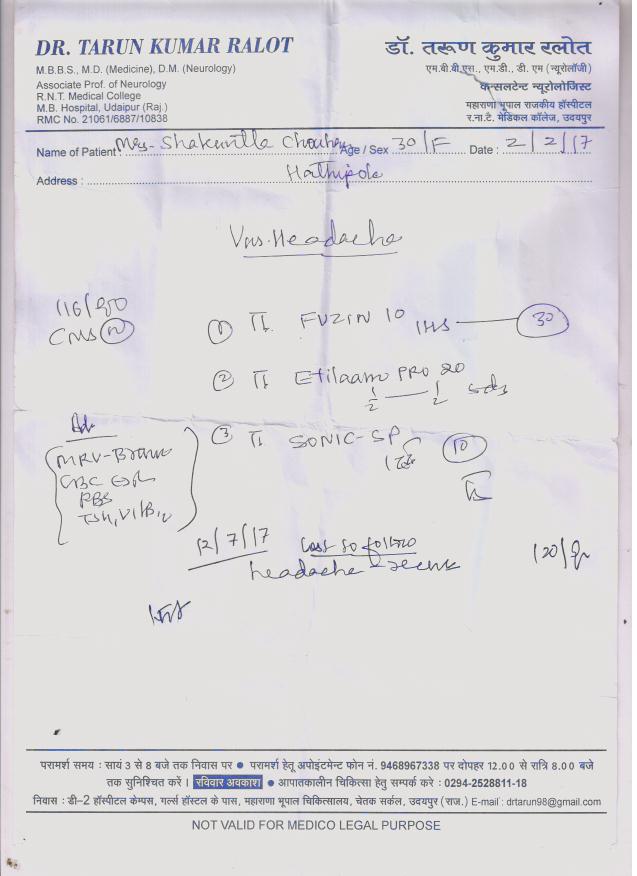 DR. TARUN KUMAR RALOT
M.B.B.S., M.D. (Medicine), D.M. (Neurology)
Associate Prof. of Neurology
R.N.T. Medical College
M.B. Hospital, Udaipur (Raj.)
RMC No. 21061/6887/10838
डॉ. तरूण कुमार रलोत
एम.बी.बी.एस., एम.डी., डी. एम (न्यूरोलॉजी)
कन्सलटेन्ट न्यूरोलोजिस्ट
महाराणा भूपाल राजकीय हॉस्पीटल
र.ना.टै. मेडिकल कॉलेज, उदयपुर
Name of Patient Mrs. Age / Sex 30/F Date : 2/2/17
Address : Hathipole
Headache
116/80
CNS (N)
① FUZIN 10 1HS 30
② PRO 20
1/2 — 1/2
③ SONIC-SP 10
MRV-Brain
CBC ESR
PBS
TSH, Vit B12
12/7/17
headache
120/
परामर्श समय : सायं 3 से 8 बजे तक निवास पर ● परामर्श हेतू अपोइंटमेन्ट फोन नं. 9468967338 पर दोपहर 12.00 से रात्रि 8.00 बजे
तक सुनिश्चित करें । रविवार अवकाश ● आपातकालीन चिकित्सा हेतु सम्पर्क करे : 0294-2528811-18
निवास : डी–2 हॉस्पीटल केम्पस, गर्ल्स हॉस्टल के पास, महाराणा भूपाल चिकित्सालय, चेतक सर्कल, उदयपुर (राज.) E-mail : drtarun98@gmail.com
NOT VALID FOR MEDICO LEGAL PURPOSE